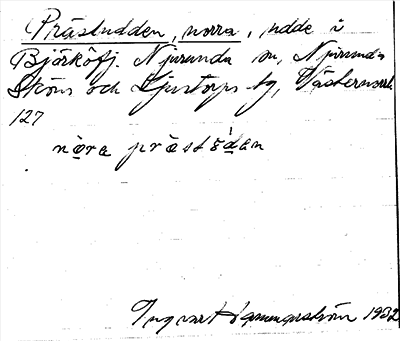 Prästudden, norra, udde i
Björköfj. Njurunda sn, Njurunda
Sköns och Ljustorps tg, Västernorrl.
127
nɷra prɷstö́dan
Ingvar Hammarström 1932